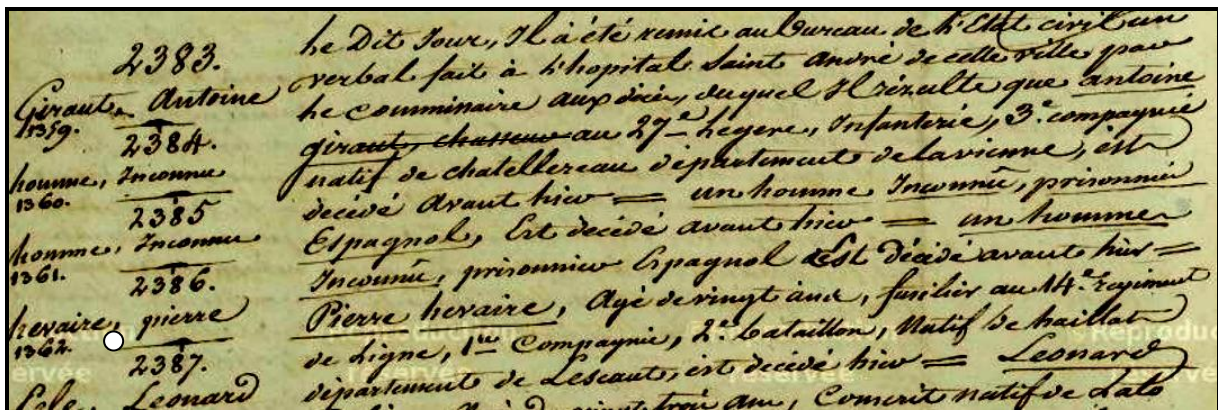 2383.
Giraut, Antoine
1359.
2384.
homme, Inconnu
1360.
2385
homme, Inconnu
1361.
2386.
hevaire, pierre
1362.
2387.
Leonard
Le Dit Jour, Il à été remis au Bureau de L'Etat civil un
verbal fait à L'hopital Saint André de cette ville par
Le Commissaire aux décès, duquel Il résulte que antoine
giraut, chasseur au 27e Legere, Infanterie, 3e compagnie
natif de chatellereau département de la vienne, est
decédé avant hier = un homme Inconnû, prisonnier
Espagnol, Est decédé avant hier = un homme
Inconnû, prisonnier Espagnol Est décédé avant hier =
Pierre hevaire, Agé de vingt ans, fusilier au 14e regiment
de Ligne, 1ere Compagnie, 2e bataillon, Natif de
département de Lescaut, est decédé hier = Leonard
trois ans, Conscrit natif de